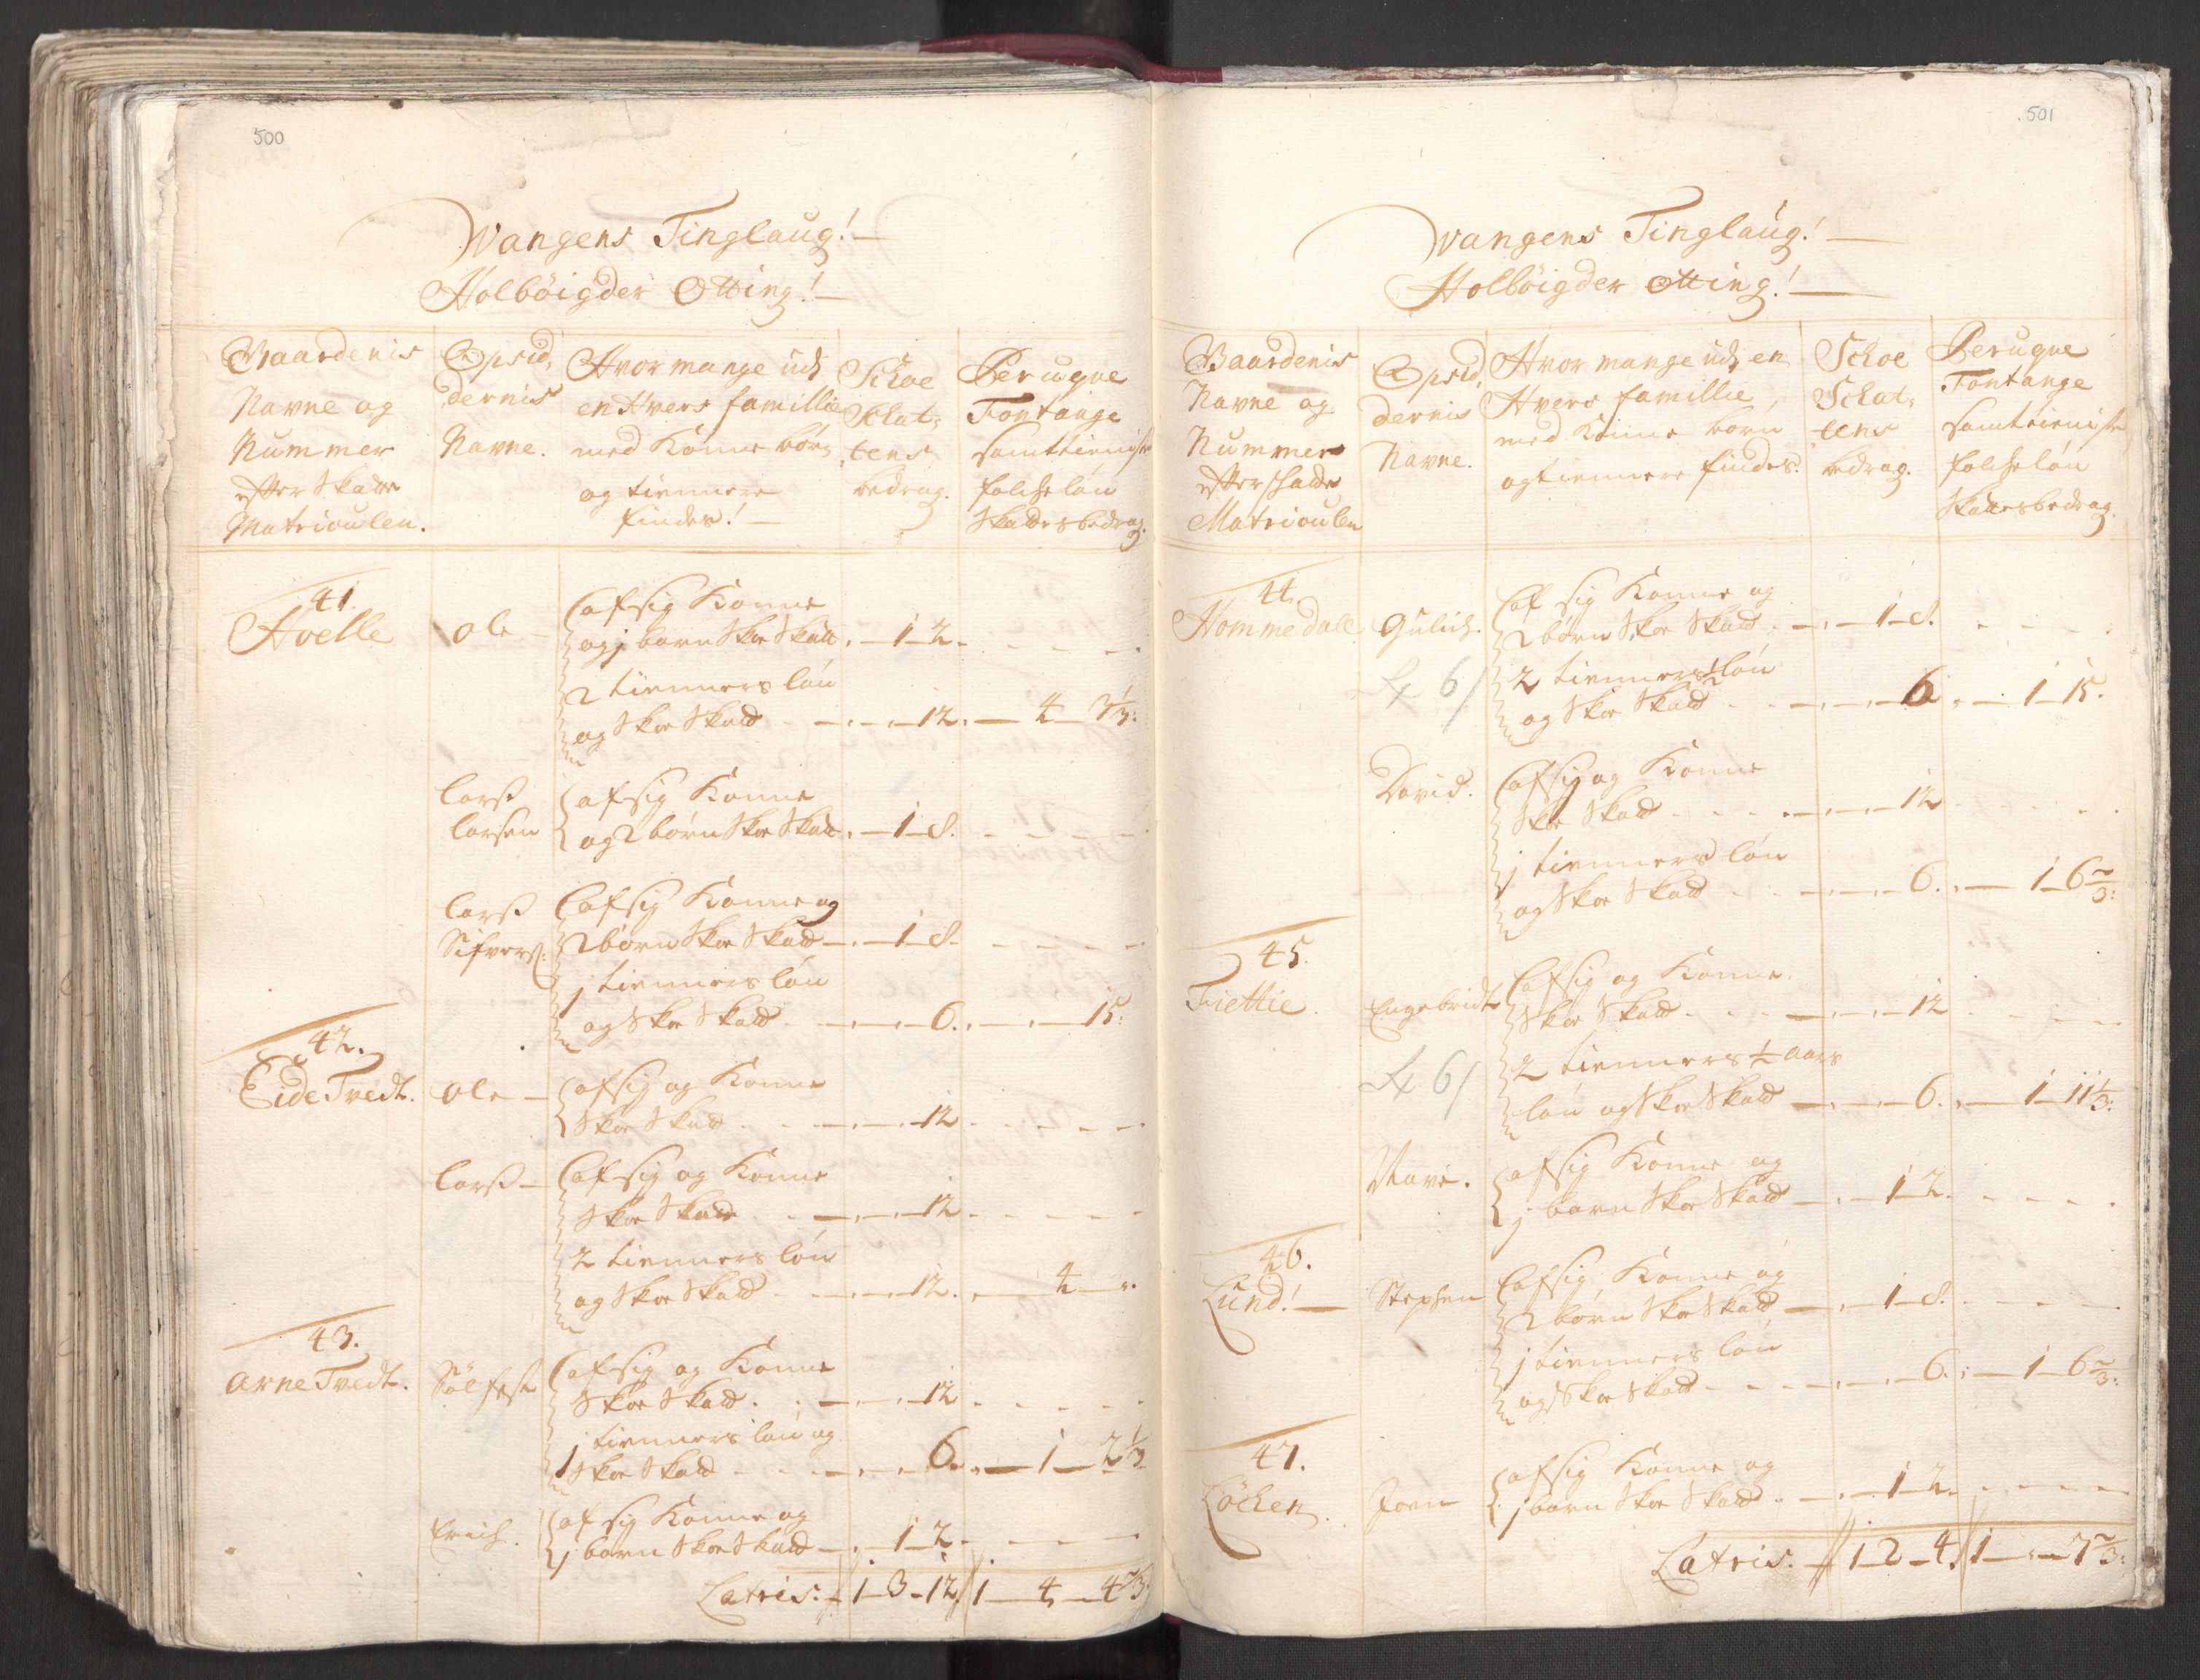 500
Wangens Tinglaug!
Holbøigder Otting!
Gaardenis Navne og Nummer effter Skatte Matriculen.
Opsiddernis Navne.
Hvor mange udj en Hvers famillie med Konne børn og tiennere findes!
Schoe Skattens bedrag.
Peruque Fontange samt tieniste folchs løn Skattes bedrag.
41.
Hvelle
Ole
af sig Konne
og j barn Skoe Skatt 1 - 2
2 tienners løn
og Skoe Skatt 12 4 3 1/3
Larss
Larsen
af sig Konne
og 2 børn Skoe Skatt 1 - 8
Larss
Sifvers:
af sig Konne og
2 børn Skoe Skatt 1 - 8
j tienners løn
og Skoe Skatt 6 15
42.
Eide Tvedt.
Ole
af sig og Konne
Skoe Skatt 12
Larss
af sig og Konne
Skoe Skatt 12
2 tienners løn
og Skoe Skatt 12 4
43.
Arne Tvedt.
Sølfest
af sig og Konne
Skoe Skatt 12
j tienners løn og
Skoe Skatt 6 1 2 1/3
Erich.
af sig Konne og
j barn Skoe Skatt 1 - 2
Latris. 1 - 3 - 12 1 - 4 - 4 2/3
501
Wangens Tinglaug!
Holbøigder Otting!
Gaardenis Navne og Nummer effter Skatte Matriculen
Opsiddernis Navne.
Hvor mange udj en Hvers famillie, med Konne børn og tiennere findes.
Schoe Schattens bedrag.
Peruque Fontange samt tieniste folchs løn Skattes bedrag.
44.
Hommedall
Gulich.
af sig Konne og
2 børn Skoe Skatt 1 - 8
2 tienners 1/2 løn
og Skoe Skatt 6 1 - 15
6/
David.
af sig og Konne
Skoe Skatt 12
j tienners løn
og Skoe Skatt 6 1 - 6 2/3
45.
Tiettie
Engebridt
af sig og Konne
Skoe Skatt 12
2 tienners 1/2 aars
løn og Skoe Skatt 6 1 - 11 1/3
6/
af sig Konne og
j barn Skoe Skatt 1 - 2
46.
Lund!
Stephen
af sig Konne og
2 børn Skoe Skatt 1 - 8
j tienners løn
og Skoe Skatt 6 1 - 6 2/3
47.
Løchen
Joen
af sig Konne og
j barn Skoe Skatt 1 - 2
Latris. 1 - 2 - 4 1 - 7 2/3